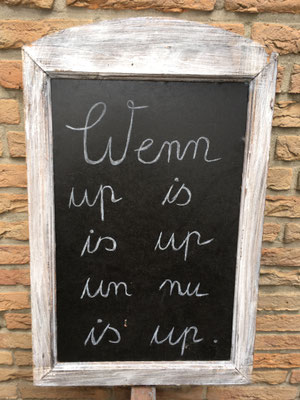 Wenn
up is
is up
un nu
is up.